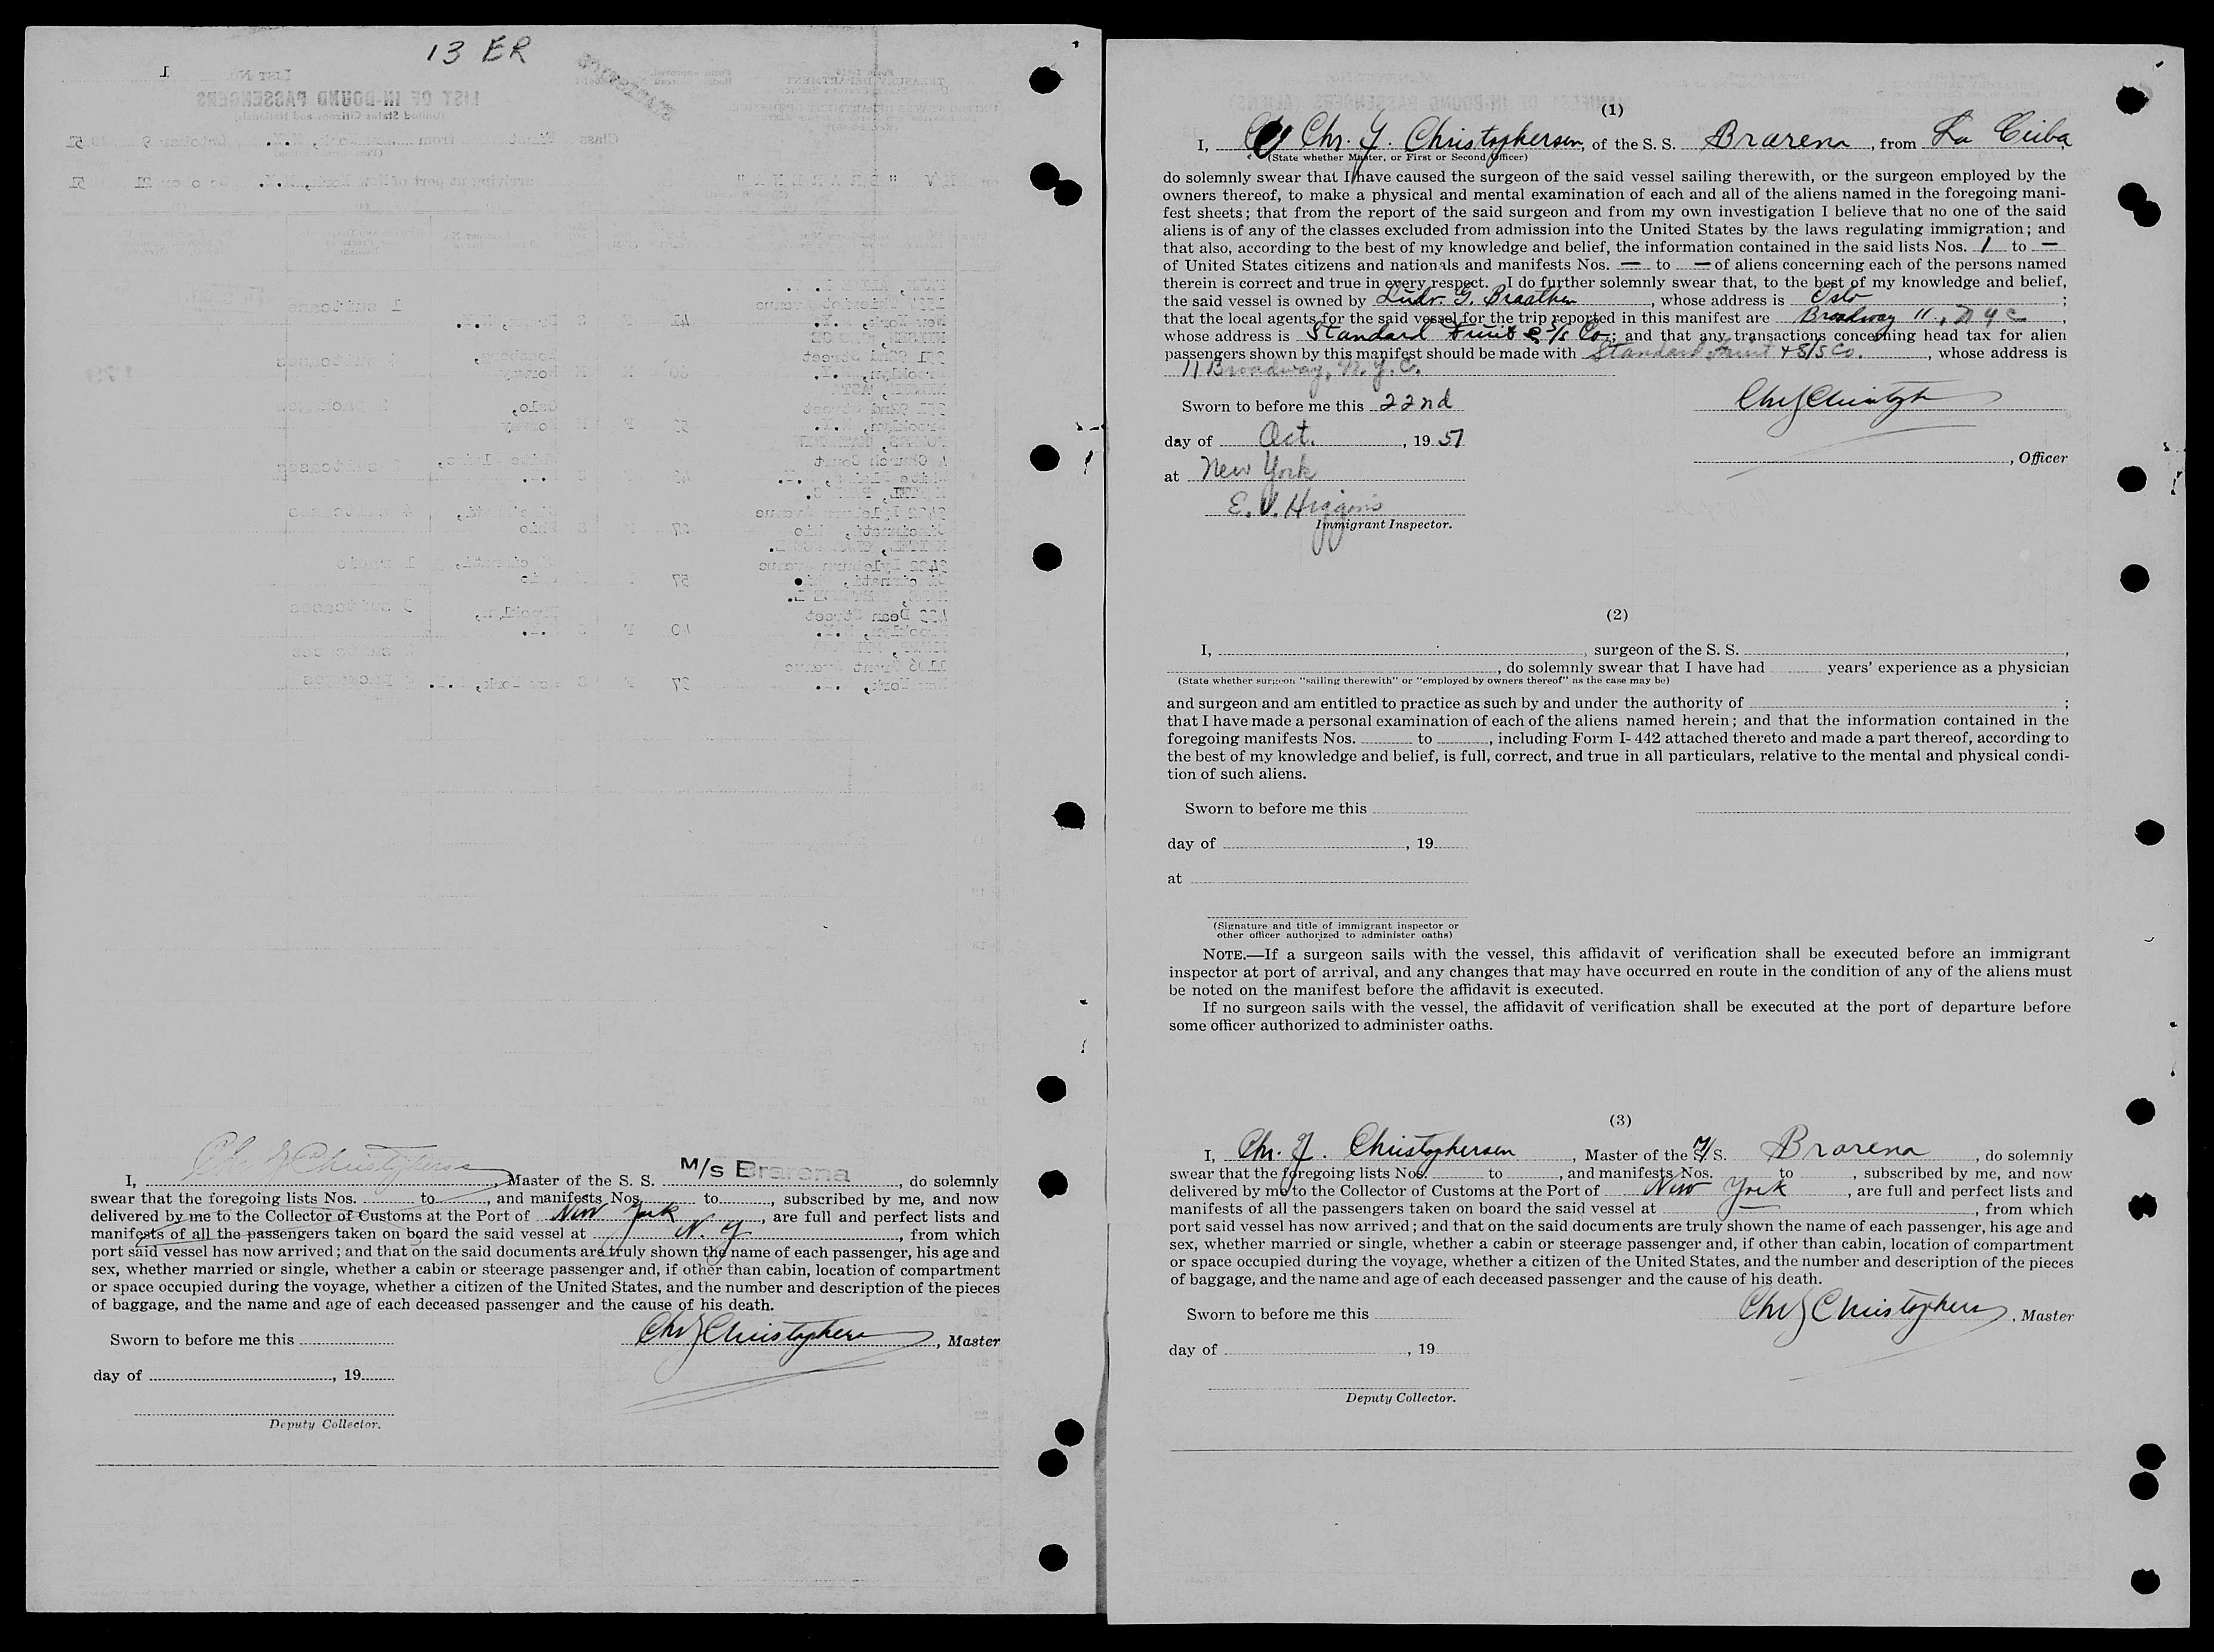 13 ER
I, Chr. J. Christophersen, Master of the S. S. M/s Brarena, do solemnly
swear that the foregoing lists Nos. to, and manifests Nos. to, subscribed by me, and now
delivered by me to the Collector of Customs at the Port of New York, are full and perfect lists and
manifests of all the passengers taken on board the said vessel at N. Y., from which
port said vessel has now arrived; and that on the said documents are truly shown the name of each passenger, his age and
sex, whether married or single, whether a cabin or steerage passenger and, if other than cabin, location of compartment
or space occupied during the voyage, whether a citizen of the United States, and the number and description of the pieces
of baggage, and the name and age of each deceased passenger and the cause of his death.
Sworn to before me this
Chr J Christophersen, Master
day of , 19
Deputy Collector.
(1)
I, Chr. J. Christophersen, of the S. S. Brarena, from La Ceiba
(State whether Master, or First or Second Officer)
do solemnly swear that I have caused the surgeon of the said vessel sailing therewith, or the surgeon employed by the
owners thereof, to make a physical and mental examination of each and all of the aliens named in the foregoing mani-
fest sheets; that from the report of the said surgeon and from my own investigation I believe that no one of the said
aliens is of any of the classes excluded from admission into the United States by the laws regulating immigration; and
that also, according to the best of my knowledge and belief, the information contained in the said lists Nos. 1 to —
of United States citizens and nationals and manifests Nos. — to — of aliens concerning each of the persons named
therein is correct and true in every respect. I do further solemnly swear that, to the best of my knowledge and belief,
the said vessel is owned by Ludv. G. Braathen, whose address is Oslo ;
that the local agents for the said vessel for the trip reported in this manifest are Broadway 11, NYC,
whose address is Standard Fruit & S/S Co.; and that any transactions concerning head tax for alien
passengers shown by this manifest should be made with Standard Fruit & S/S Co., whose address is
11 Broadway, N.Y.C.
Sworn to before me this 22nd
day of Oct., 1951
at New York
, Officer
E. V. Higgins
Immigrant Inspector.
(2)
I, , surgeon of the S. S. ,
, do solemnly swear that I have had years' experience as a physician
(State whether surgeon "sailing therewith" or "employed by owners thereof" as the case may be)
and surgeon and am entitled to practice as such by and under the authority of ;
that I have made a personal examination of each of the aliens named herein; and that the information contained in the
foregoing manifests Nos. to , including Form I-442 attached thereto and made a part thereof, according to
the best of my knowledge and belief, is full, correct, and true in all particulars, relative to the mental and physical condi-
tion of such aliens.
Sworn to before me this
day of , 19
at
(Signature and title of immigrant inspector or
other officer authorized to administer oaths)
NOTE.—If a surgeon sails with the vessel, this affidavit of verification shall be executed before an immigrant
inspector at port of arrival, and any changes that may have occurred en route in the condition of any of the aliens must
be noted on the manifest before the affidavit is executed.
If no surgeon sails with the vessel, the affidavit of verification shall be executed at the port of departure before
some officer authorized to administer oaths.
(3)
I, Chr. J. Christophersen, Master of the M/S. Brarena, do solemnly
swear that the foregoing lists Nos. to , and manifests Nos. to , subscribed by me, and now
delivered by me to the Collector of Customs at the Port of New York, are full and perfect lists and
manifests of all the passengers taken on board the said vessel at , from which
port said vessel has now arrived; and that on the said documents are truly shown the name of each passenger, his age and
sex, whether married or single, whether a cabin or steerage passenger and, if other than cabin, location of compartment
or space occupied during the voyage, whether a citizen of the United States, and the number and description of the pieces
of baggage, and the name and age of each deceased passenger and the cause of his death.
Sworn to before me this
Chr J Christophersen, Master
day of , 19
Deputy Collector.